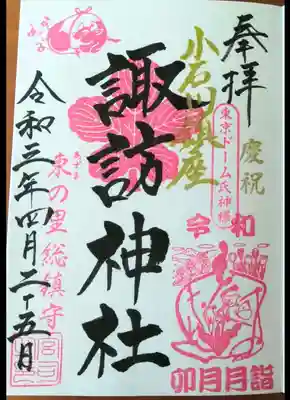 奉拝
慶祝
小石川鎮座
東京ドーム氏神様
令和
卯月月詣
諏訪神社
東の里総鎮守
令和三年四月二十五日